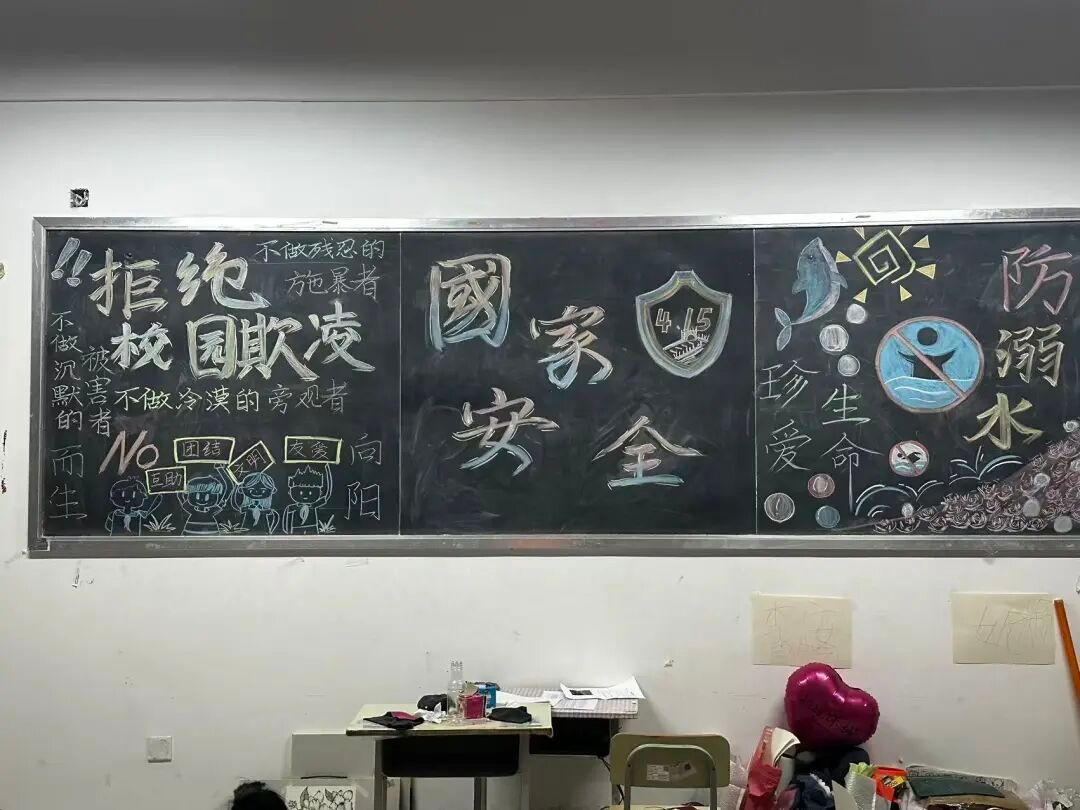 !!
拒绝
校园欺凌
不做残忍的
施暴者
不做沉默的
被害者
不做冷漠的旁观者
No
团结
互助
文明
友爱
向阳
而生
國家
安全
4.15
珍爱
生命
防溺水